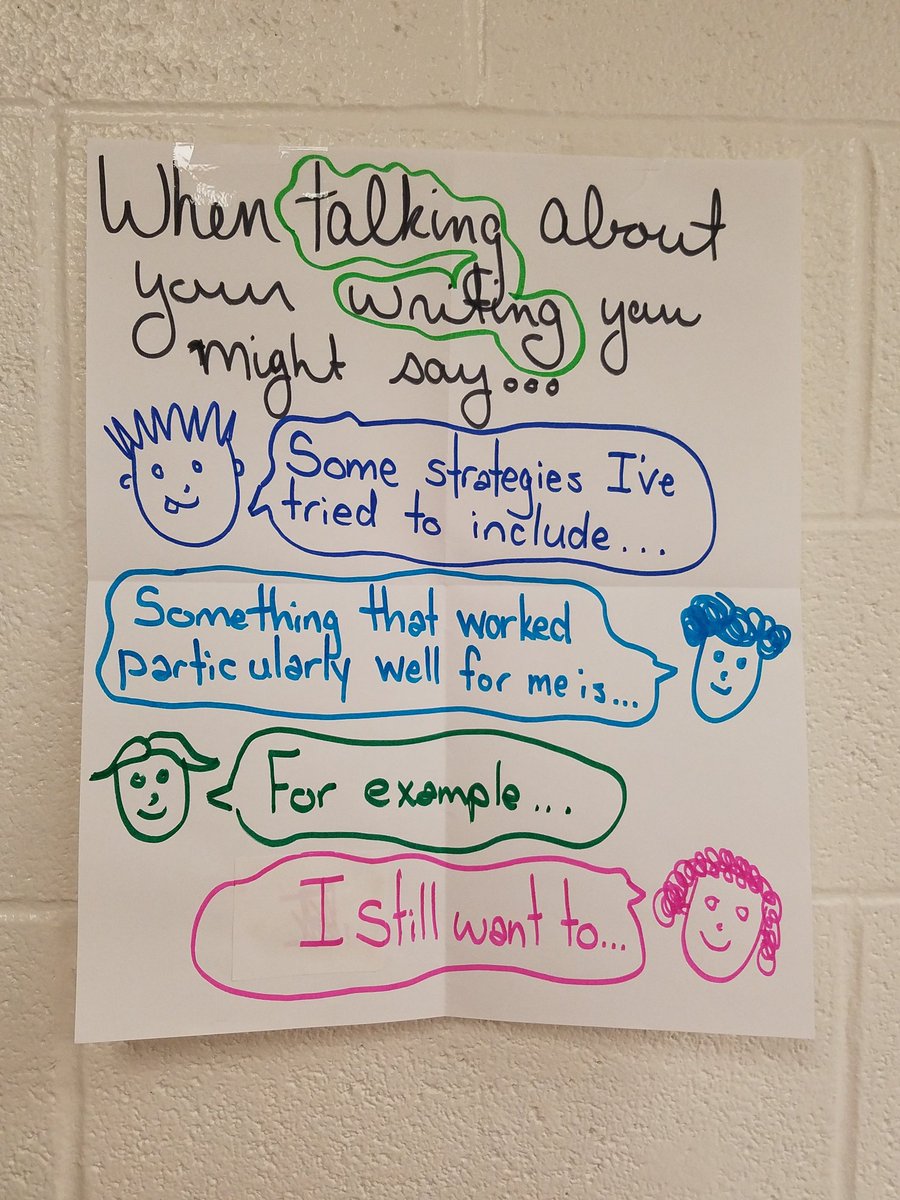 When talking about
your writing you
might say...
Some strategies I've
tried to include...
Something that worked
particularly well for me is...
For example...
I still want to...